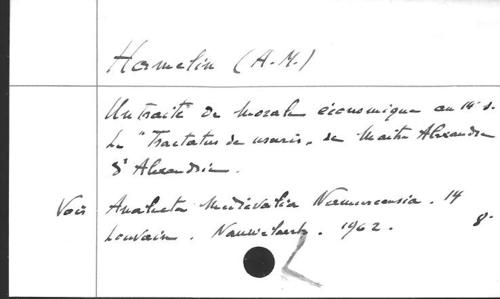 Hamelin (A.-M.)
Un traité de morale économique au 14e s.
Le "Tractatus de usuris" de Maître Alexandre
d'Alexandrie.
Voir Analecta Mediaevalia Namurcensia. 14
Louvain. Nauwelaerts. 1962. 8°